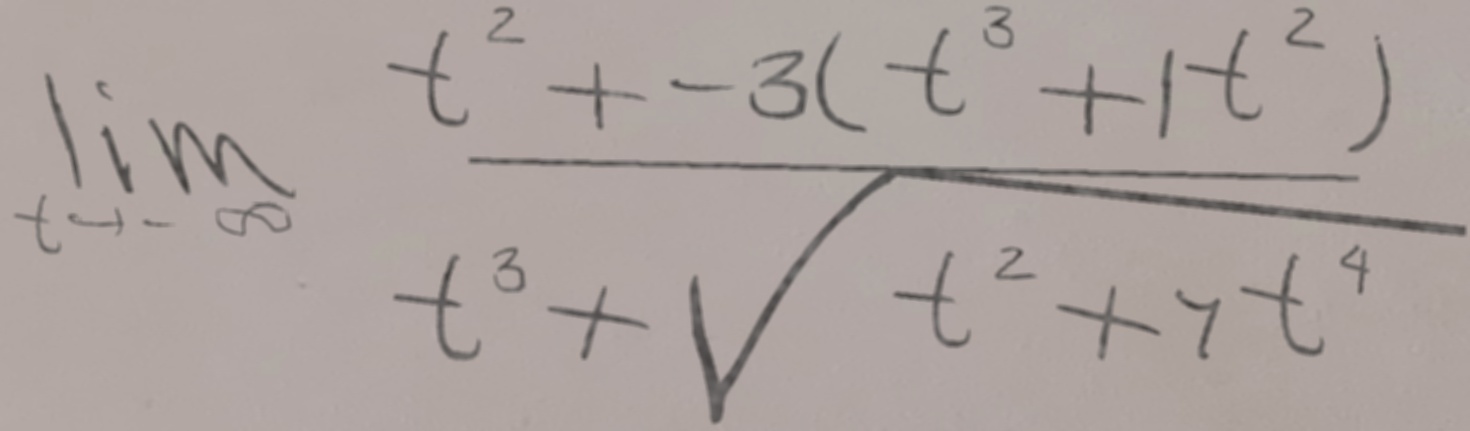 \lim_{t \to -\infty} \frac{t^2 + -3(t^3 + 1t^2)}{t^3 + \sqrt{t^2 + 7t^4}}